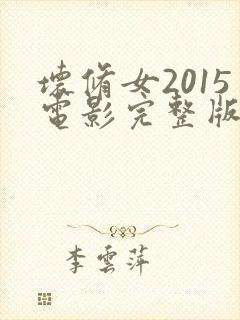 壞脩女2015
電影完整版
李雲萍